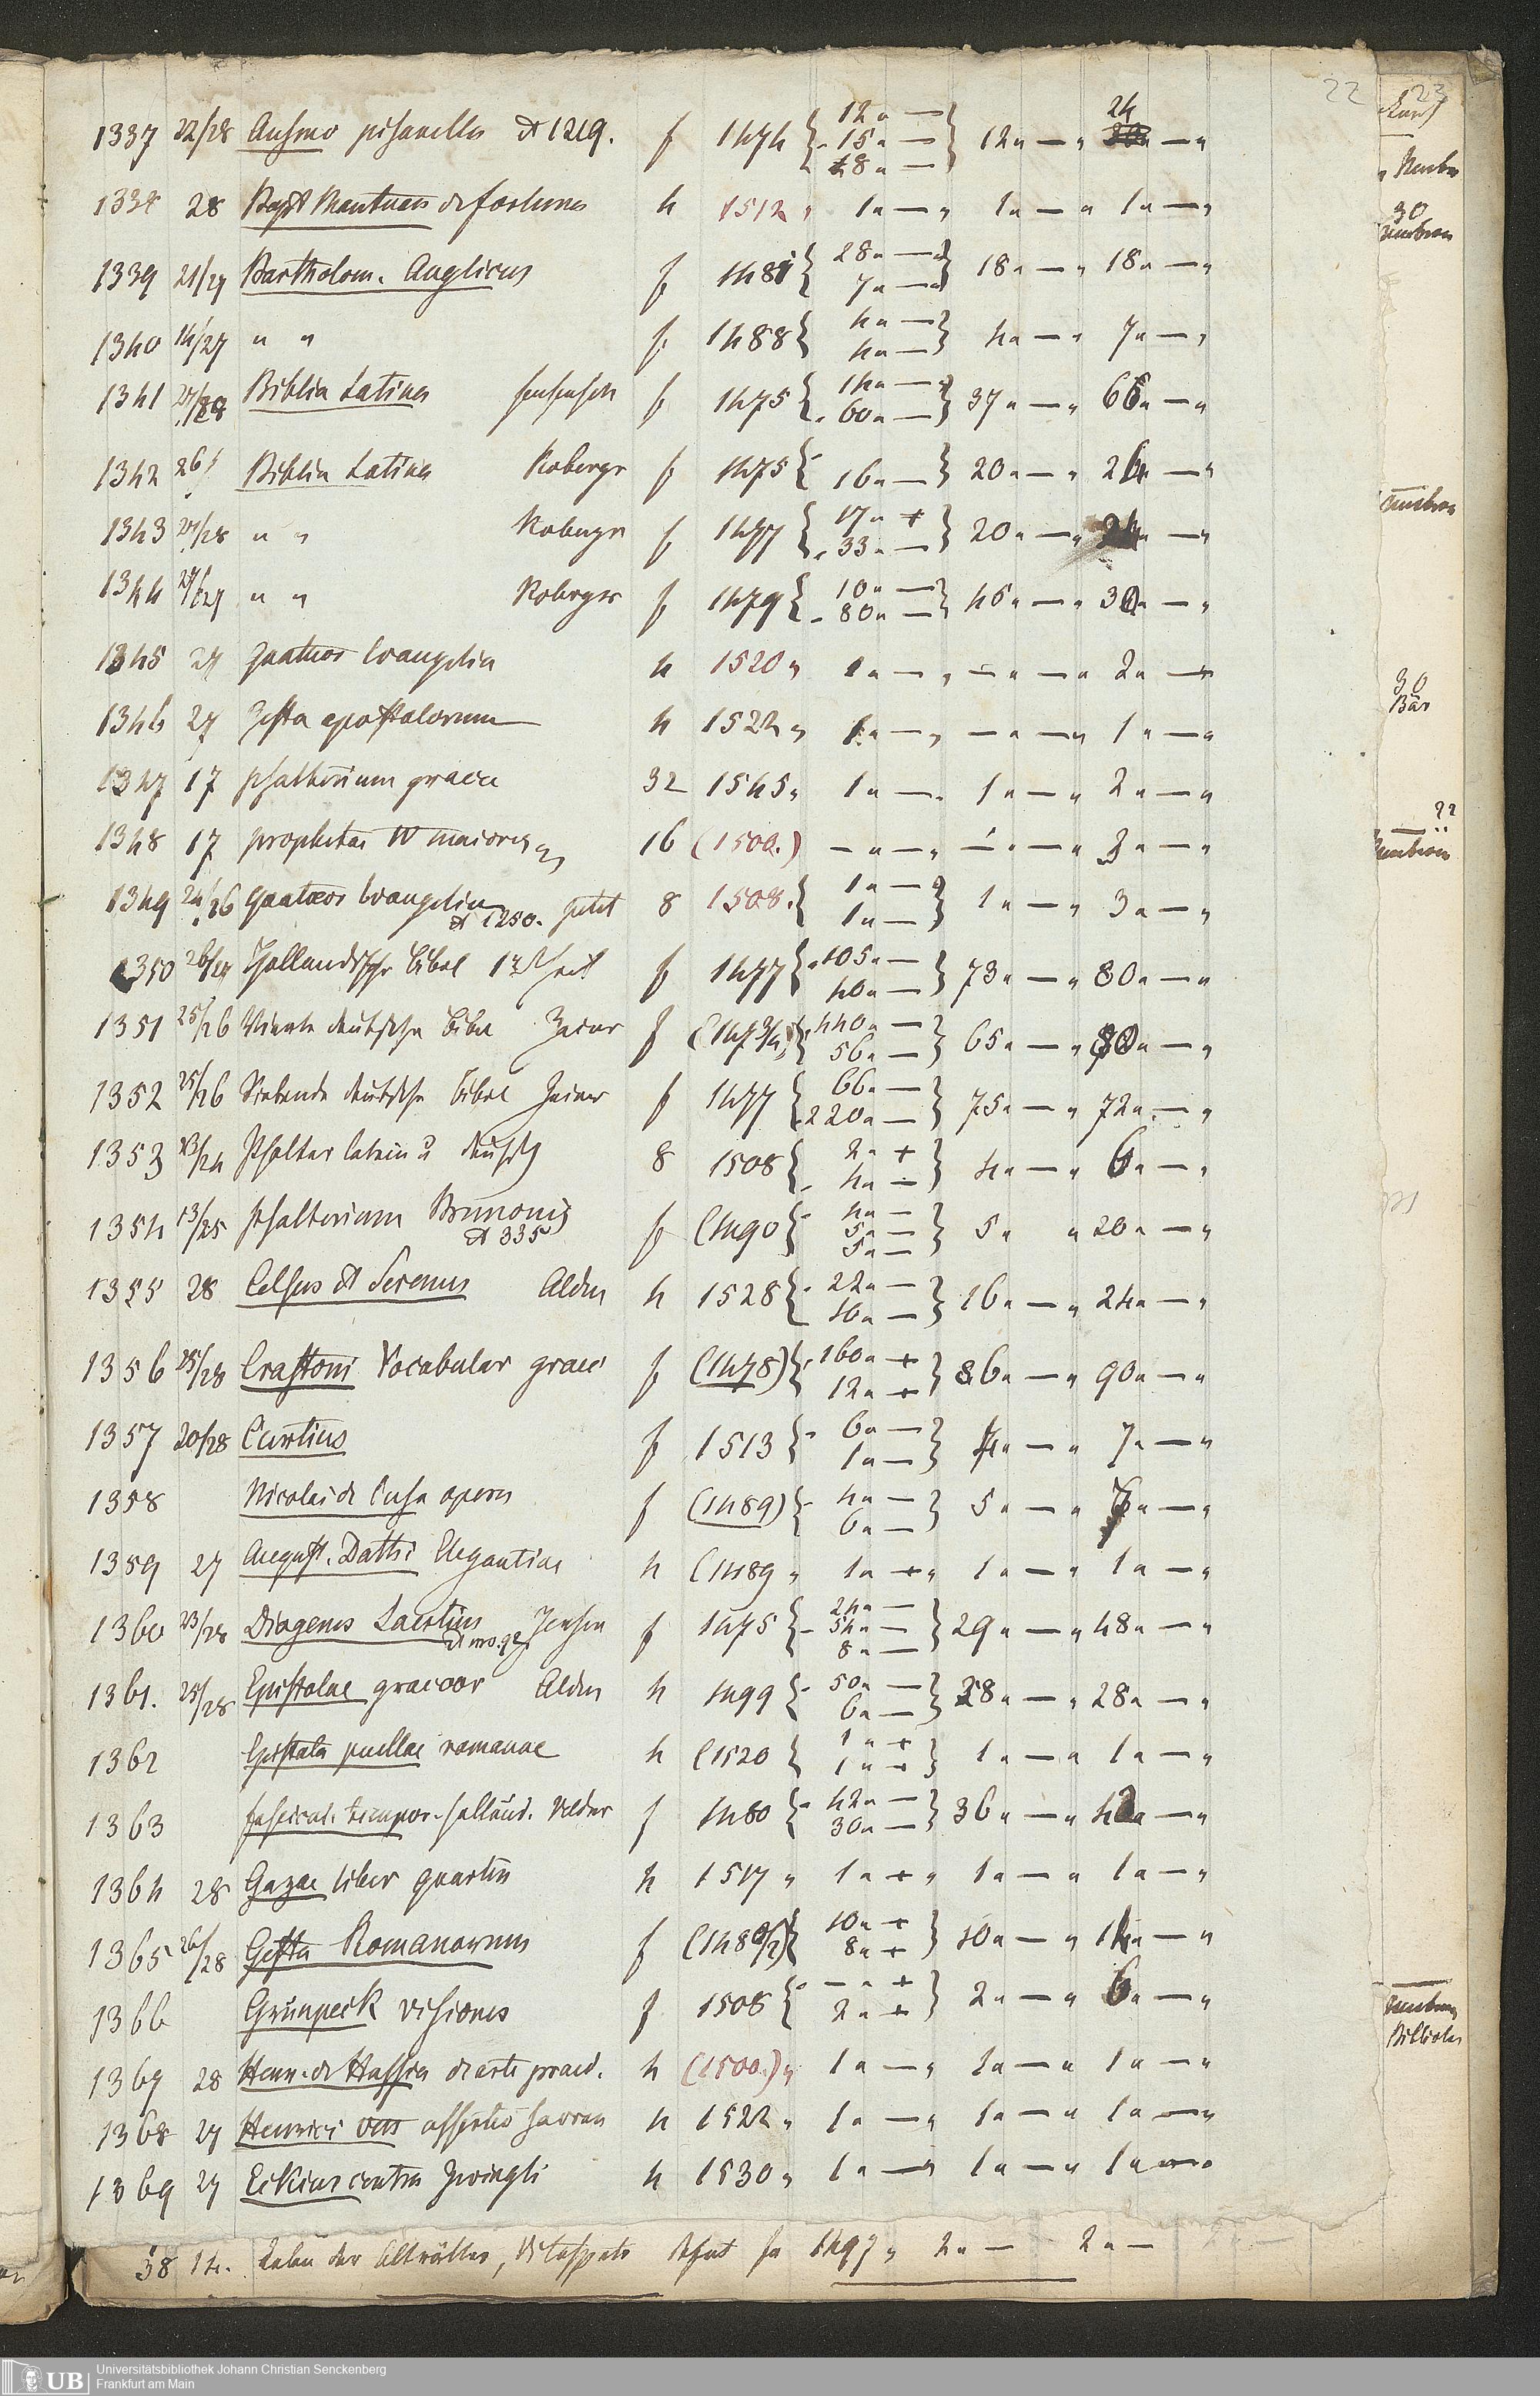 22 23
1337 22/28 Ausmo pisanella et 1219. f 1474 { 12 „ — 15 „ — 18 „ — } 12 „ — „ 24 „ — „
1338 28 Bapt Mantuan de fortuna 4 1512 „ 1 „ — „ 1 „ — „ 1 „ — „
1339 21/27 Bartholom. Anglicus f 1481 { 28 „ — 7 „ — } 18 „ — „ 18 „ — „
1340 14/27 „ „ f. 1488 { 4 „ — 4 „ — } 4 „ — „ 7 „ — „
1341 27/28 Biblia Latina Sensensch f 1475 { 14 „ — 60 „ — } 37 „ — „ 66 „ — „
1342 26/ Biblia Latina Koberger f 1475 { 16 „ — } 20 „ — „ 24 „ — „
1343 27/28 „ „ Koberger f 1477 { 17 „ + 33 „ — } 20 „ — „ 24 „ — „
1344 27/29 „ „ Koberger f 1479 { 10 „ — 80 „ — } 45 „ — „ 30 „ — „
1345 27 Quatuor Evangelia 4 1520 „ 1 „ — „ — „ — „ 2 „ — „
1346 27 Gesta apostolorum 4 1522 „ 1 „ — „ — „ — „ 1 „ — „
1347 17 psalterium graece 32 1545 „ 1 „ — „ 1 „ — „ 2 „ — „
1348 17 prophetae IV maiores 16 (1500.) — „ — „ — „ — „ 3 „ — „
1349 24/26 Quatuor Evangelia et 1250. petit 8 1508. { 1 „ — 1 „ — } 1 „ — „ 3 „ — „
1350 26/27 Holländische Bibel 1r Theil f 1477 { 105 „ — 40 „ — } 73 „ — „ 80 „ — „
1351 25/26 Vierte deutsche Bibel Zainer f (1473/4) { 440 „ — 56 „ — } 65 „ — „ 80 „ — „
1352 25/26 Siebende deutsche Bibel Zainer f 1477 { 66 „ — 220 „ — } 75 „ — „ 72 „ — „
1353 23/24 Psalter latein u deutsch 8 1508 { 2 „ + 4 „ — } 4 „ — „ 6 „ — „
1354 13/25 Psalterium Brunonis et 335 f (1490 { 4 „ — 5 „ — 5 „ — } 5 „ „ 20 „ — „
1355 28 Celsus et Serenus Aldus 4 1528 { 22 „ — 16 „ — } 16 „ — „ 24 „ — „
1356 25/28 Crastoni Vocabular graec f (1478) { 160 „ + 12 „ + } 86 „ — „ 90 „ — „
1357 20/28 Curtius f 1513 { 6 „ — 1 „ — } 4 „ — „ 7 „ — „
1358 Nicolai de Cusa opera f (1489) { 4 „ — 6 „ — } 5 „ — „ 7 „ — „
1359 27 August. Dathi Elegantiae 4 (1489 „ 1 „ + „ 1 „ — „ 1 „ — „
1360 23/28 Diogenes Laertius Jenson f 1475 { 24 „ — 54 „ — 8 „ — } 29 „ — „ 48 „ — „
1361. 25/28 Epistolae graecor Aldus 4 1499 { 50 „ — 6 „ — } 28 „ — „ 28 „ — „
1362 Epistola puellae romanae 4 (1520 { 1 „ + 1 „ + } 1 „ — „ 1 „ — „
1363 fascicul. tempor. holländ. Veldner f 1480 { 42 „ — 30 „ — } 36 „ — „ 42 „ — „
1364 28 Gazae liber quartus 4 1517 „ 1 „ + „ 1 „ — „ 1 „ — „
1365 26/28 Gesta Romanorum f (1480/2) { 10 „ + 8 „ + } 10 „ — „ 14 „ — „
1366 Grünpeck visiones f 1508 { — „ + 2 „ + } 2 „ — „ 6 „ — „
1367 28 Henr. de Hassia de arte praed. 4 (1500.) „ 1 „ — „ 1 „ — „ 1 „ — „
1368 27 Henrici VIII assertio sacram 4 1522 „ 1 „ — „ 1 „ — „ 1 „ — „
1369 27 Eckius contra Zwingli 4 1530 „ 1 „ — „ 1 „ — „ 1 „ — „
38 14. Leben der Altväter, 1497 „ 2 „ — 2 „ —
30
30
Bär
Universitätsbibliothek Johann Christian Senckenberg
Frankfurt am Main
UB